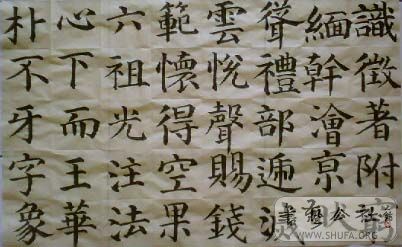 識徵著附
緬幹澮亰
聳禮部遍
雲悅聲賜錢
範懷得空果
六祖光注法
心下而王華
朴不牙字象
書藝公社
WWW.SHUFA.ORG